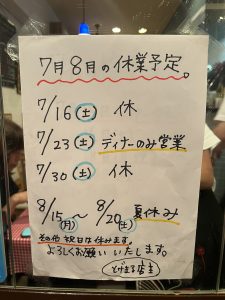 7月8月の休業予定。
7/16(土) 休
7/23(土) ディナーのみ営業
7/30(土) 休
8/15(月)～8/20(土) 夏休み
その他祝日は休みます。
よろしくお願いいたします。
とげまる店主